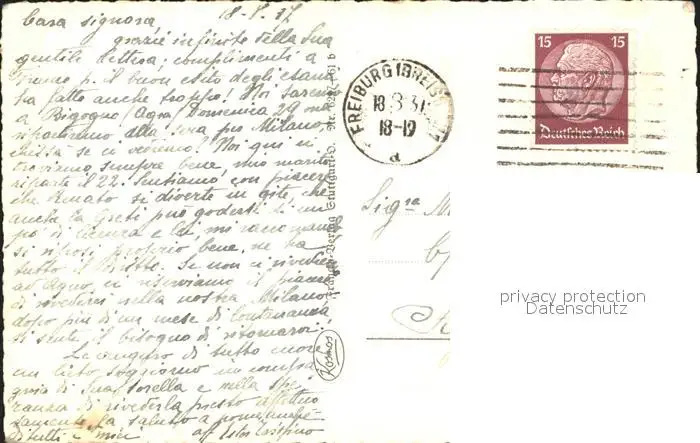 18-8.37
Cara signora,
grazie infinite della Sua
gentile lettera; complimenti a
p. il buon esito degli esami
ha fatto anche troppo! Noi saremo
a Bigogno (Agra) Domenica 29 ma
ripartiremo alla sera per Milano,
chissà se ci vedremo! Noi qui ci
troviamo sempre bene mio marito
riparte il 22. Sentiamo con piacere
che si diverte in gite, che
anche la può godersi di un
po' di e lei, mi raccomando
si riposi proprio bene, ne ha
tutto il diritto. Se non ci rivedremo
ad Agno, ci riserviamo il piacere
di rivederci nella nostra Milano,
dopo più di un mese di lontananza
si sente il bisogno di ritornarci.
Le auguro di tutto cuore
un lieto soggiorno in compa-
gnia di Sua sorella e nella spe-
ranza di rivederla presto affettuo-
samente La saluto a nome anche
di tutti i miei aff
Verlag Stuttgart-O. Nr.
Kosmos
FREIBURG (BREISGAU)
18-19
d
15 15
Deutsches Reich
Sigra M
privacy protection
Datenschutz